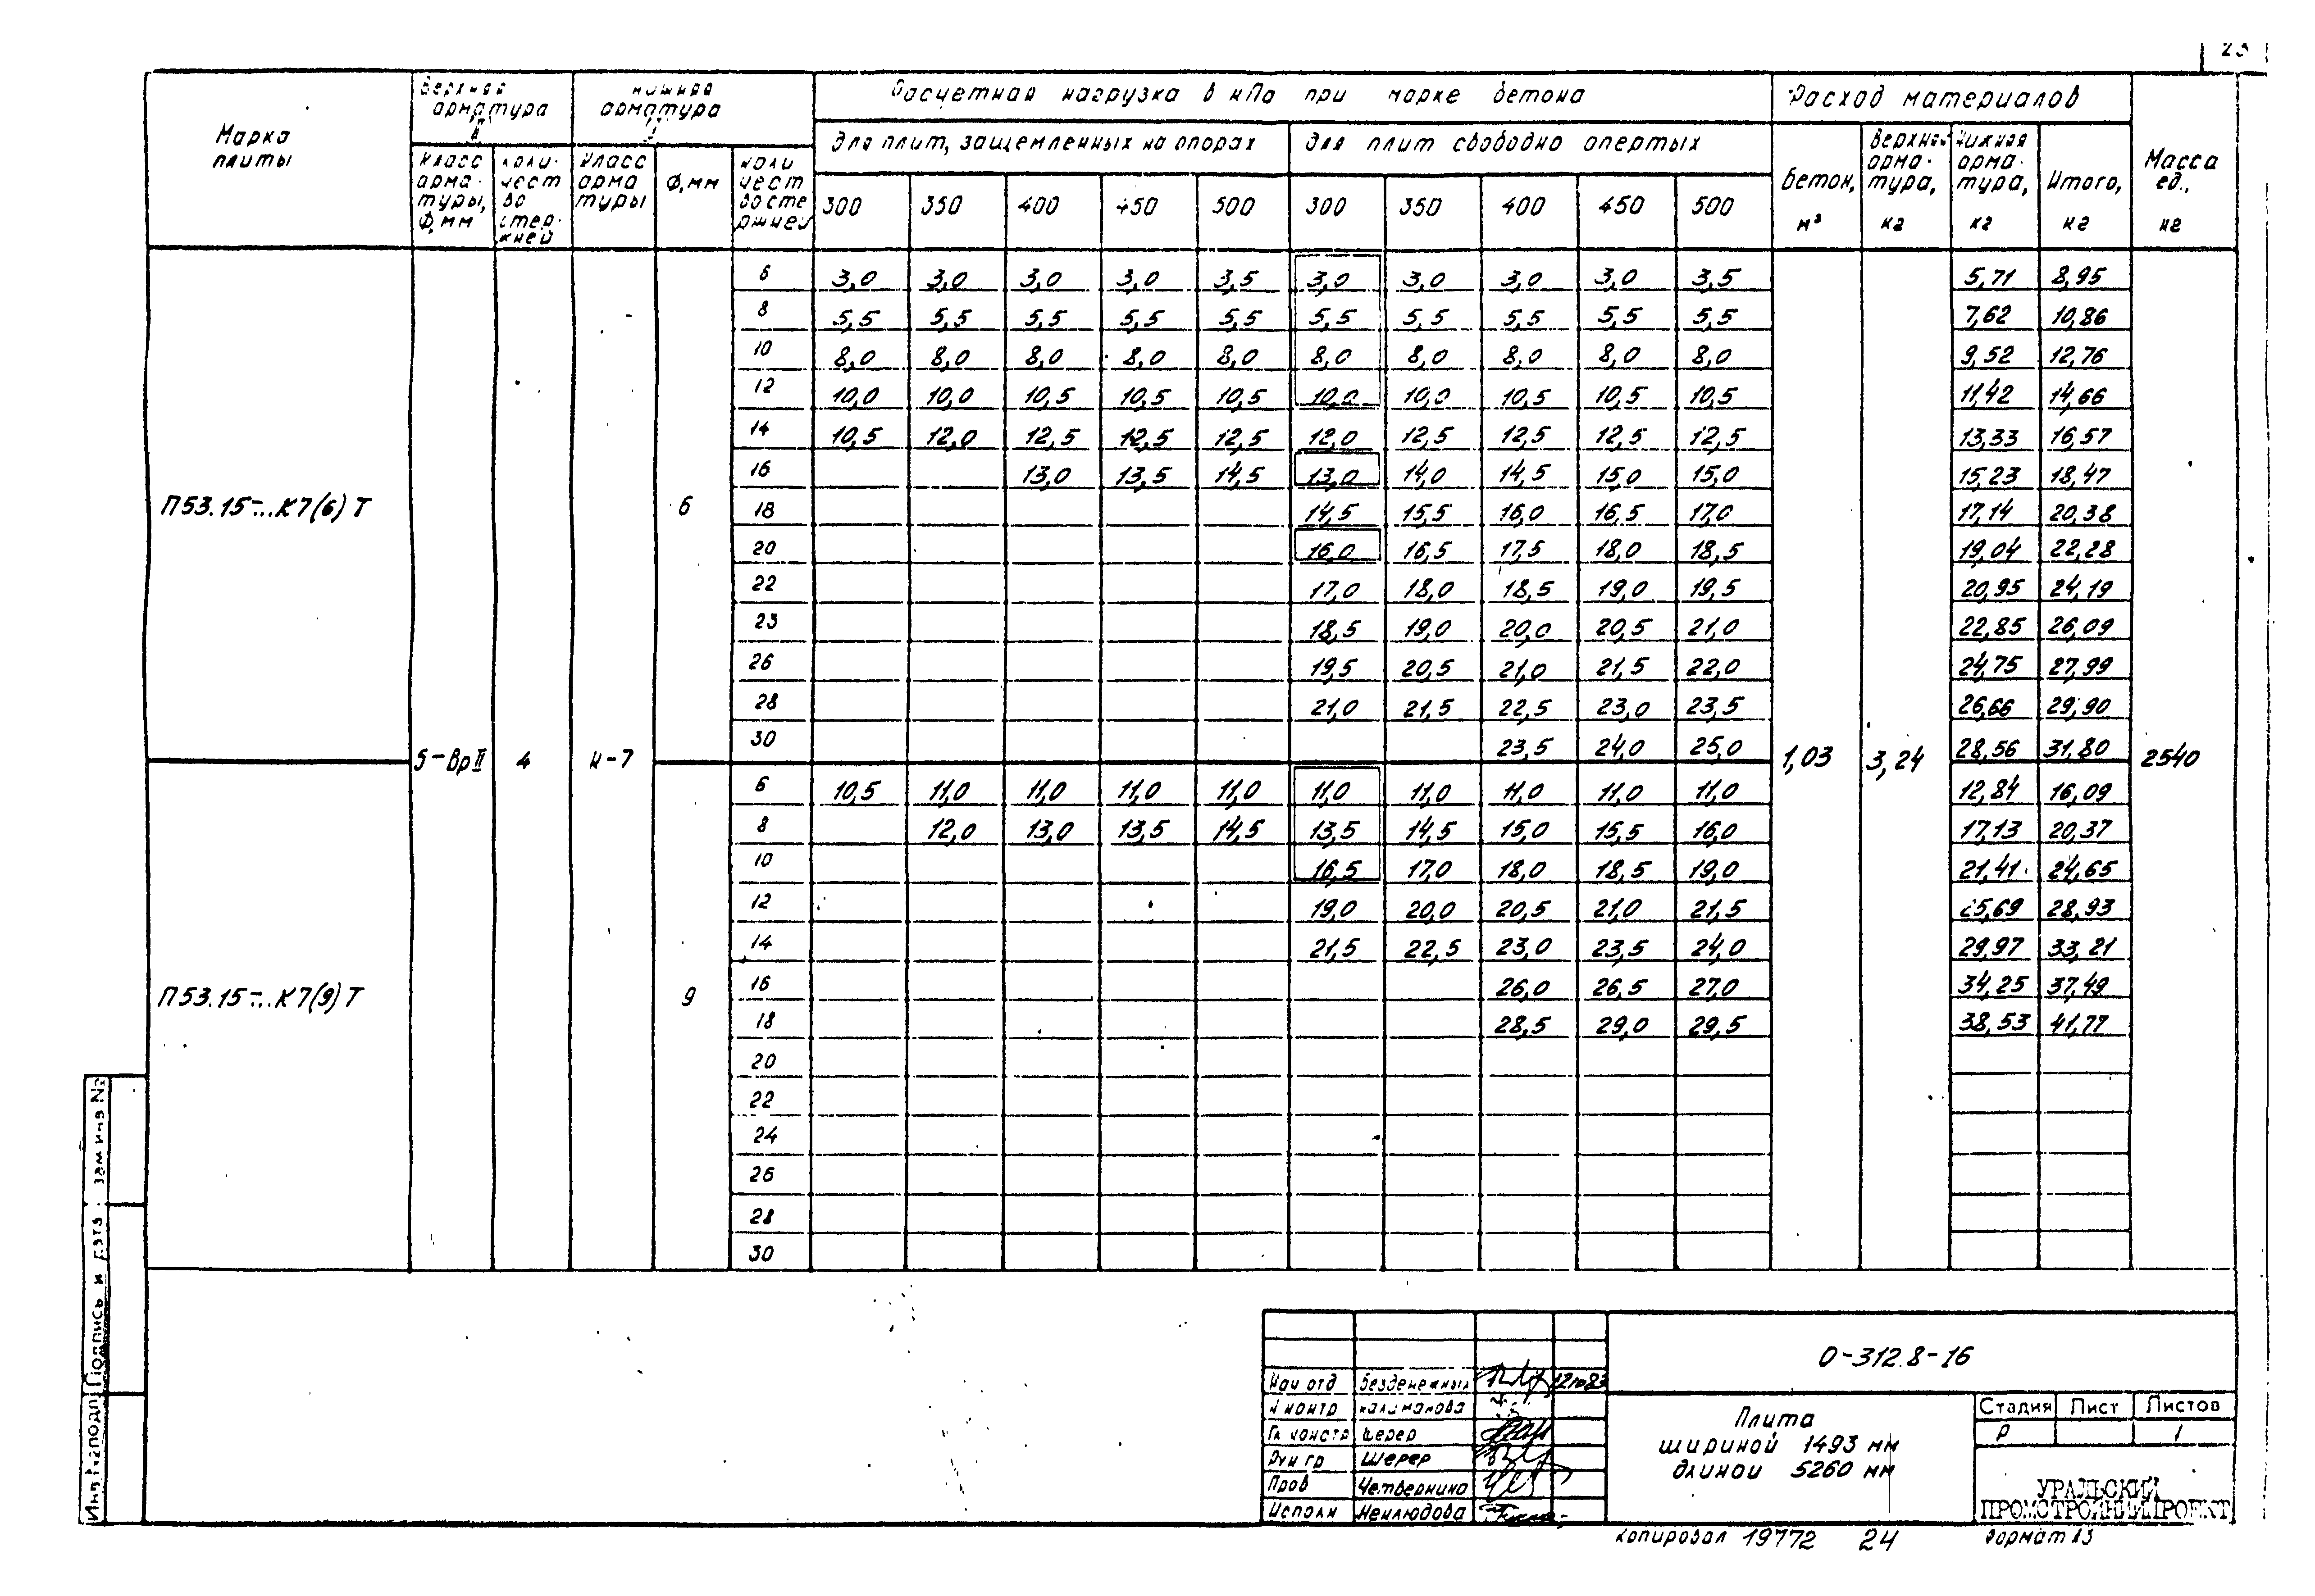 23
Марка плиты
Верхняя арматура
Нижняя арматура
Расчетная нагрузка в кПа при марке бетона
Расход материалов
Масса ед., кг
Для плит, защемленных на опорах
Для плит свободно опертых
Класс арматуры, Ф, мм
Количество стержней
Класс арматуры
Ф, мм
Количество стержней
300 350 400 450 500 300 350 400 450 500
Бетон, м³
Верхняя арматура, кг
Нижняя арматура, кг
Итого, кг
6 3,0 3,0 3,0 3,0 3,5 3,0 3,0 3,0 3,0 3,5 5,71 8,95
8 5,5 5,5 5,5 5,5 5,5 5,5 5,5 5,5 5,5 5,5 7,62 10,86
10 8,0 8,0 8,0 8,0 8,0 8,0 8,0 8,0 8,0 8,0 9,52 12,76
12 10,0 10,0 10,5 10,5 10,5 10,0 10,0 10,5 10,5 10,5 11,42 14,66
14 10,5 12,0 12,5 12,5 12,5 12,0 12,5 12,5 12,5 12,5 13,33 16,57
16 13,0 13,5 14,5 13,0 14,0 14,5 15,0 15,0 15,23 18,47
П53.15-...К7(6)Т 6 18 14,5 15,5 16,0 16,5 17,0 17,14 20,38
20 16,0 16,5 17,5 18,0 18,5 19,04 22,28
22 17,0 18,0 18,5 19,0 19,5 20,95 24,19
23 18,5 19,0 20,0 20,5 21,0 22,85 26,09
26 19,5 20,5 21,0 21,5 22,0 24,75 27,99
28 21,0 21,5 22,5 23,0 23,5 26,66 29,90
30 23,5 24,0 25,0 28,56 31,80
5-ВрII 4 К-7 1,03 3,24 2540
6 10,5 11,0 11,0 11,0 11,0 11,0 11,0 11,0 11,0 11,0 12,84 16,09
8 12,0 13,0 13,5 14,5 13,5 14,5 15,0 15,5 16,0 17,13 20,37
10 16,5 17,0 18,0 18,5 19,0 21,41 24,65
12 19,0 20,0 20,5 21,0 21,5 25,69 28,93
14 21,5 22,5 23,0 23,5 24,0 29,97 33,21
П53.15-...К7(9)Т 9 16 26,0 26,5 27,0 34,25 37,49
18 28,5 29,0 29,5 38,53 41,77
20
22
24
26
28
30
Подпись и дата
зам инв №
О-312.8-16
Нач отд Безденежных 12.10.83
Н контр Калиманова
Гл констр Шерер
Рук гр Шерер
Пров Четвернина
Исполн Неклюдова
Плита
шириной 1493 мм
длиной 5260 мм
Стадия Лист Листов
Р 1
УРАЛЬСКИЙ
ПРОМСТРОЙНИИПРОЕКТ
Копировал 19772 24 Формат А3